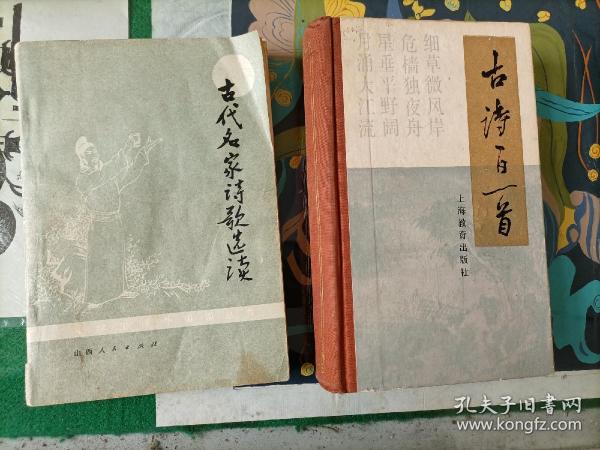 古代名家诗歌选读
山西人民出版社
细草微风岸
危樯独夜舟
星垂平野阔
月涌大江流
古诗百首
上海教育出版社
孔夫子旧书网
www.kongfz.com